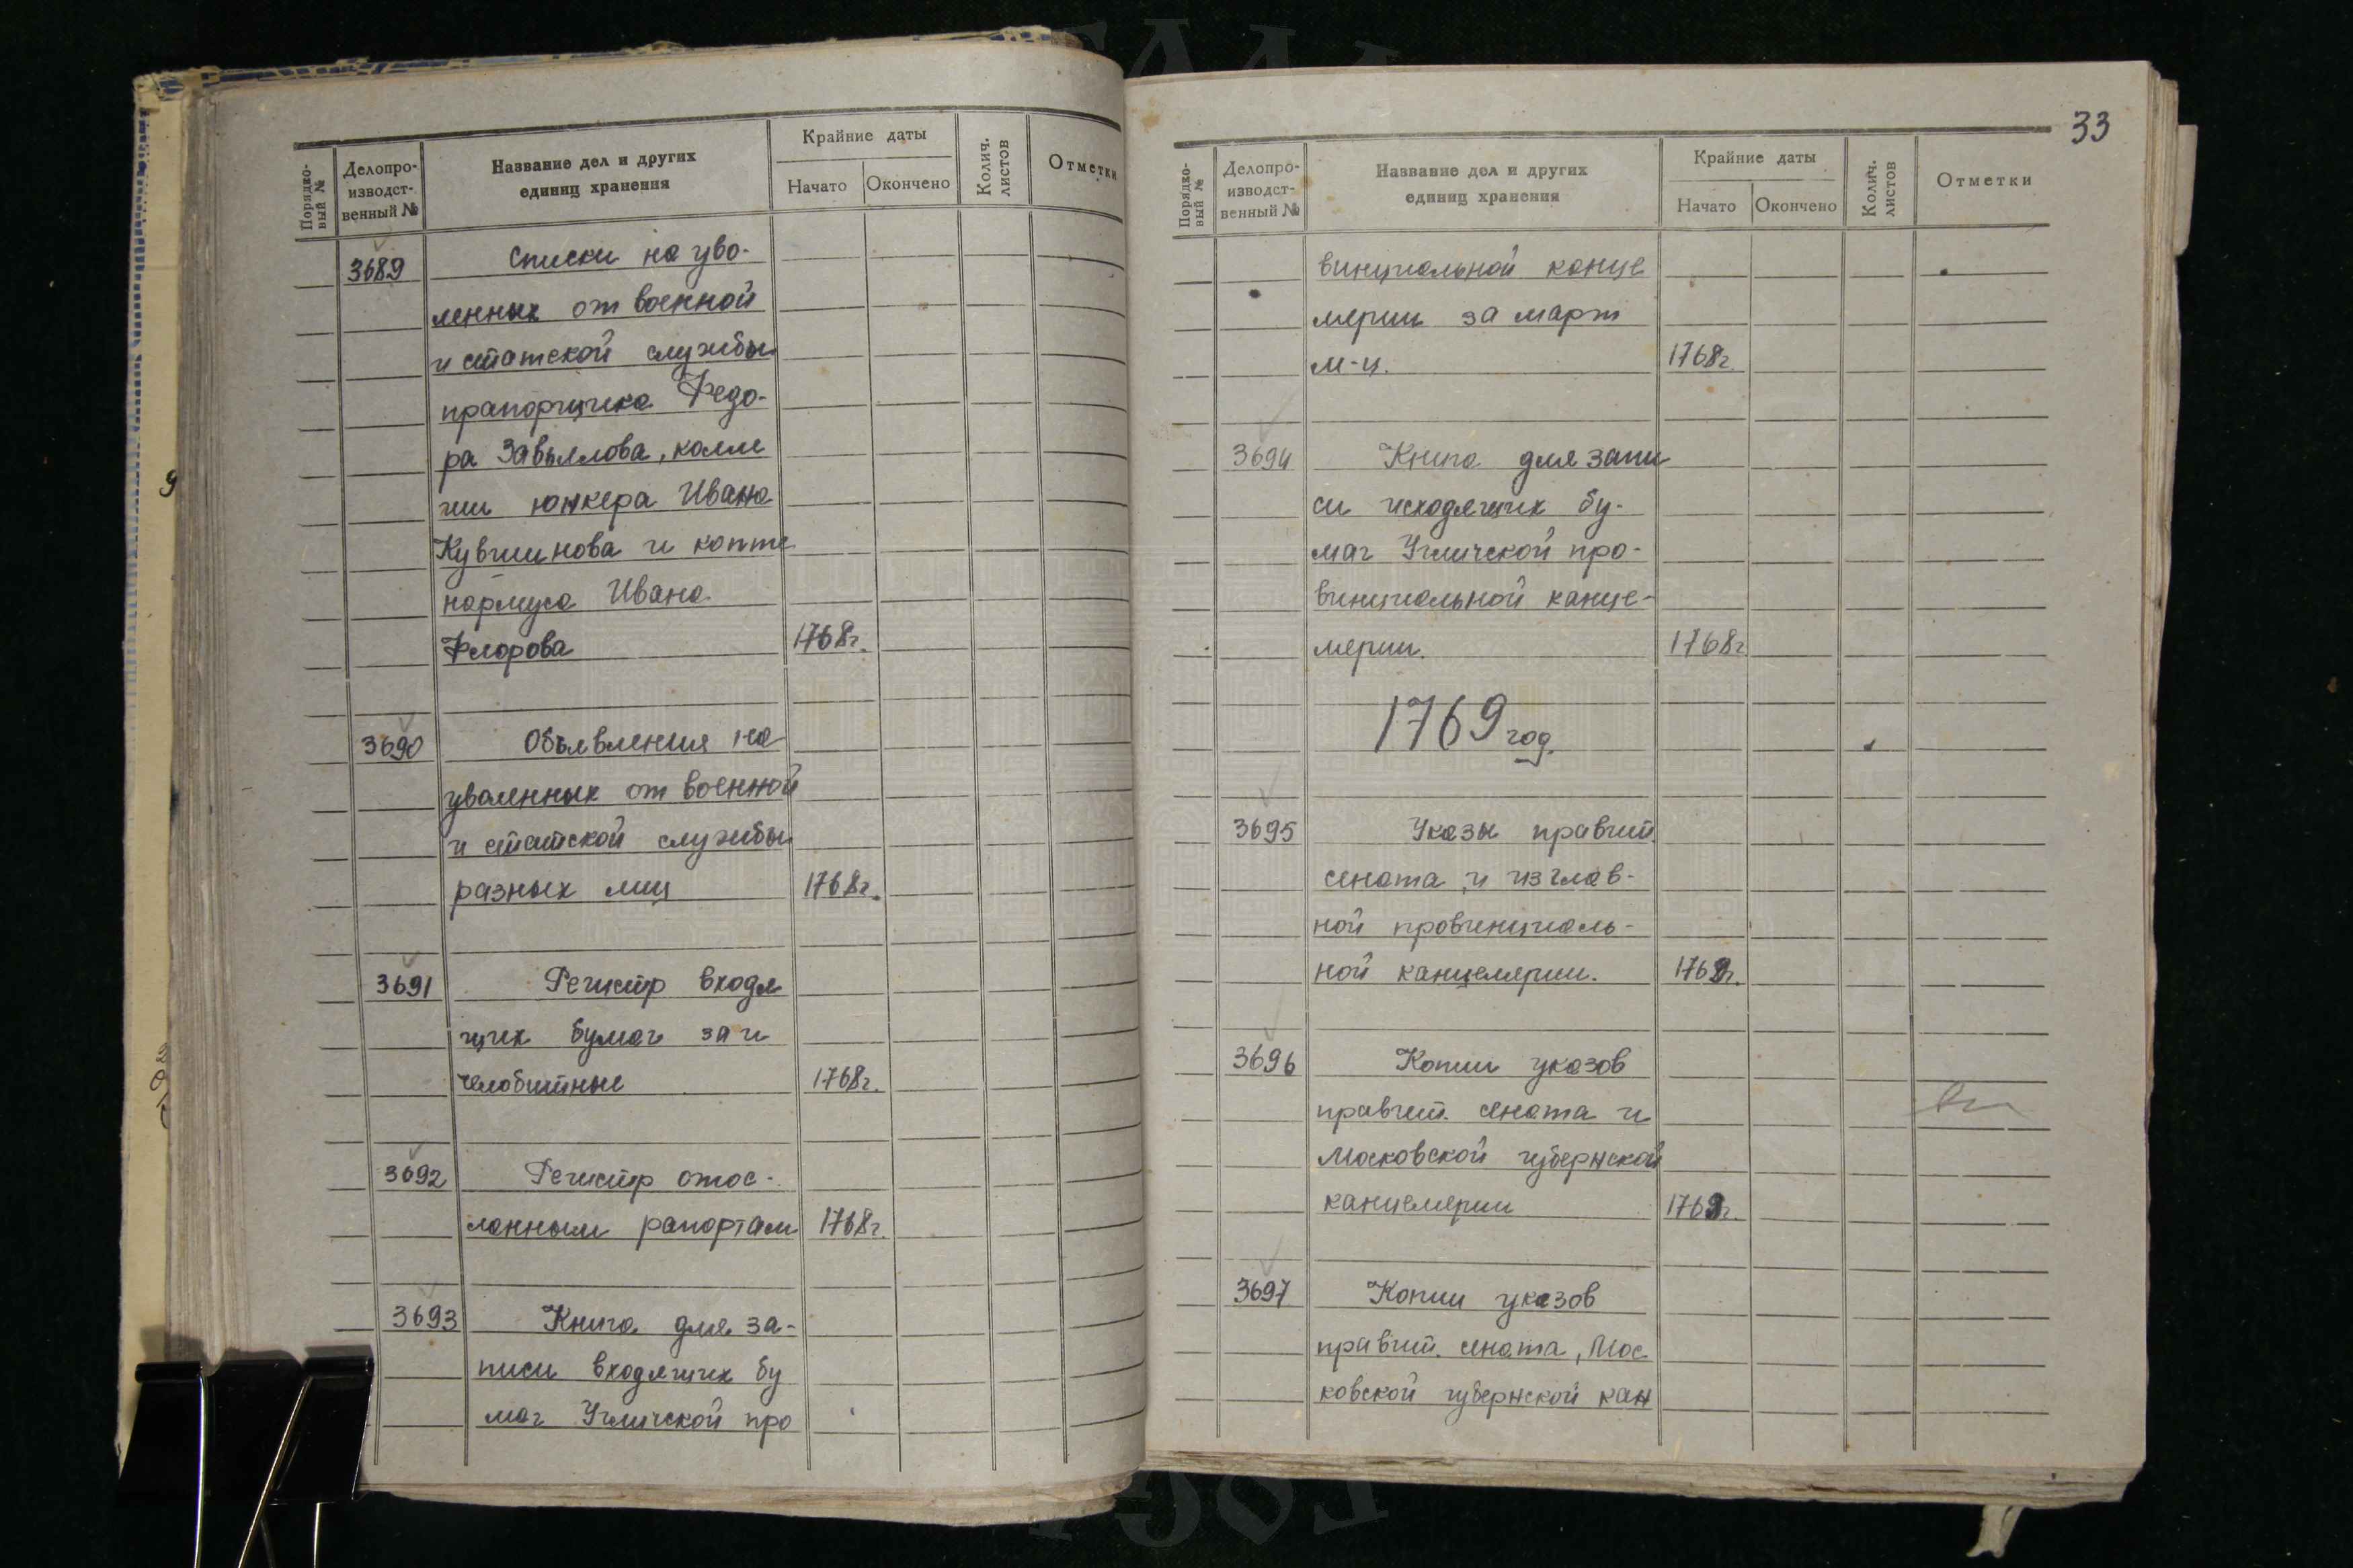 Порядко-
вый №
Делопро-
изводст-
венный №
Название дел и других
единиц хранения
Крайние даты
Начато
Окончено
Колич.
листов
Отметки
3689 Списки на уво-
ленных от военной
и статской службы
прапорщика Федо-
ра Завьялова, колле
гии юнкера Ивана
Кувшинова и копте
нармуса Ивана
Флорова 1768г.
3690 Объявления на
уволенных от военной
и статской службы
разных лиц 1768г.
3691 Регистр входя
щих бумаг за и
челобитные 1768г.
3692 Регистр отос-
ланным рапортам 1768г.
3693 Книга для за-
писи входящих бу
маг Угличской про
33
Порядко-
вый №
Делопро-
изводст-
венный №
Название дел и других
единиц хранения
Крайние даты
Начато
Окончено
Колич.
листов
Отметки
винциальной канце
лярии за март
м-ц. 1768г.
3694 Книга для запи
си исходящих бу-
маг Угличской про-
винциальной канце-
лярии. 1768г
1769 год.
3695 Указы правит.
сената и из глав-
ной провинциаль-
ной канцелярии. 1769г.
3696 Копии указов
правит. сената и
Московской губернской
канцелярии 1769г.
3697 Копии указов
правит. сената, Мос
ковской губернской кан